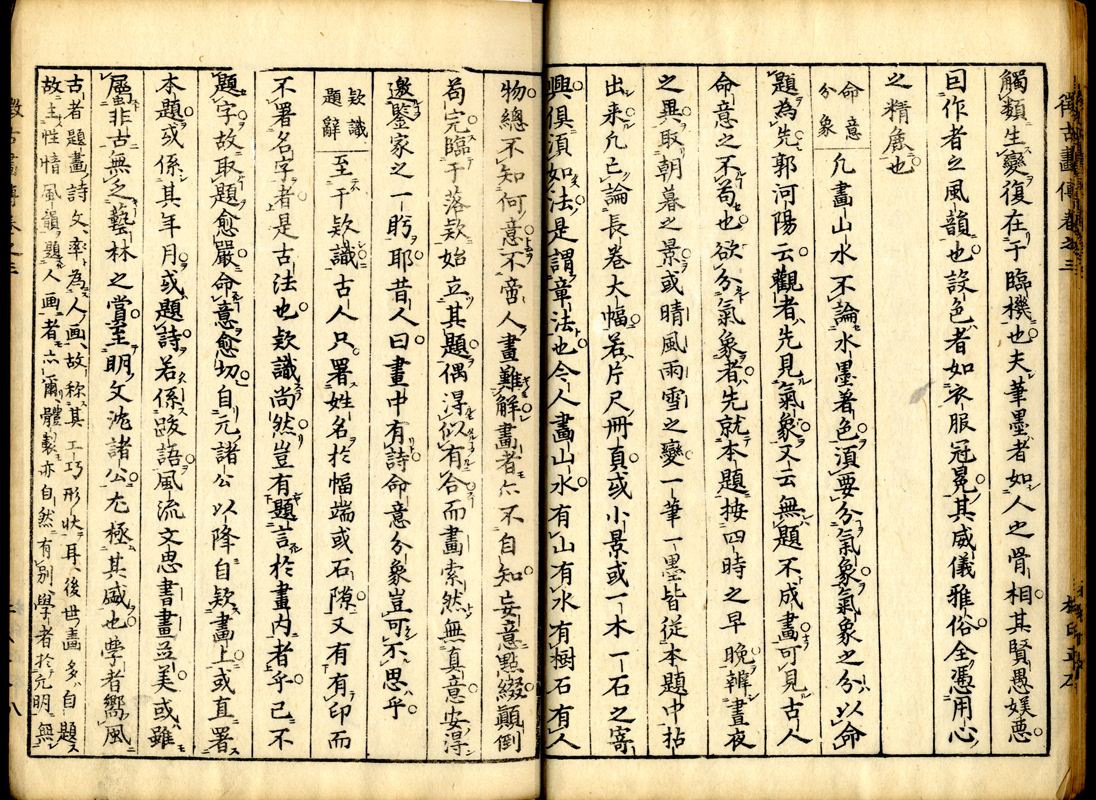 觸類生變復在于臨機也夫筆墨者如人之骨相其賢愚媄惡
囙作者之風韻也設色者如衣服冠冕其威儀雅俗全憑用心
之精麁也
命意分象 凢畫山水不論水墨著色須要分氣象氣象之分以命
題為先郭河陽云觀者先見氣象又云無題不成畫可見古人
命意之不苟也欲分氣象者先就本題按四時之早晚辨晝夜
之異取朝暮之景或晴風雨雪之變一筆一墨皆從本題中拈
出来凢已論長卷大幅若片尺冊頁或小景或一木一石之寄
興俱須如法是謂章法也今人畫山水有山有水有樹石有人
物總不知何意不啻人畫難解畫者亦不自知妄意點綴顚倒
苟完臨于落欵始立其題偶淂似有合而畫索然無真意安淂
邀鑒家之一䀎耶昔人曰畫中有詩命意分象豈可不思乎
欵識題辭 至于欵識古人只署姓名於幅端或石隙又有有印而
不署名字者是古法也欵識尚然豈有題言於畫内者乎已不
題字故取題愈嚴命意愈切自元諸公以降自欵畫上或直署
本題或係其年月或題詩若係跋語風流文思書畫並美或雖
屬非古無乏藝林之賞至明文沈諸公尢極其盛也學者嚮風
古者題畫詩文率為人画故称其工巧形状耳後世畵多自題
故主性情風韻題人画者亦尓體製亦自然有別學者於元明無